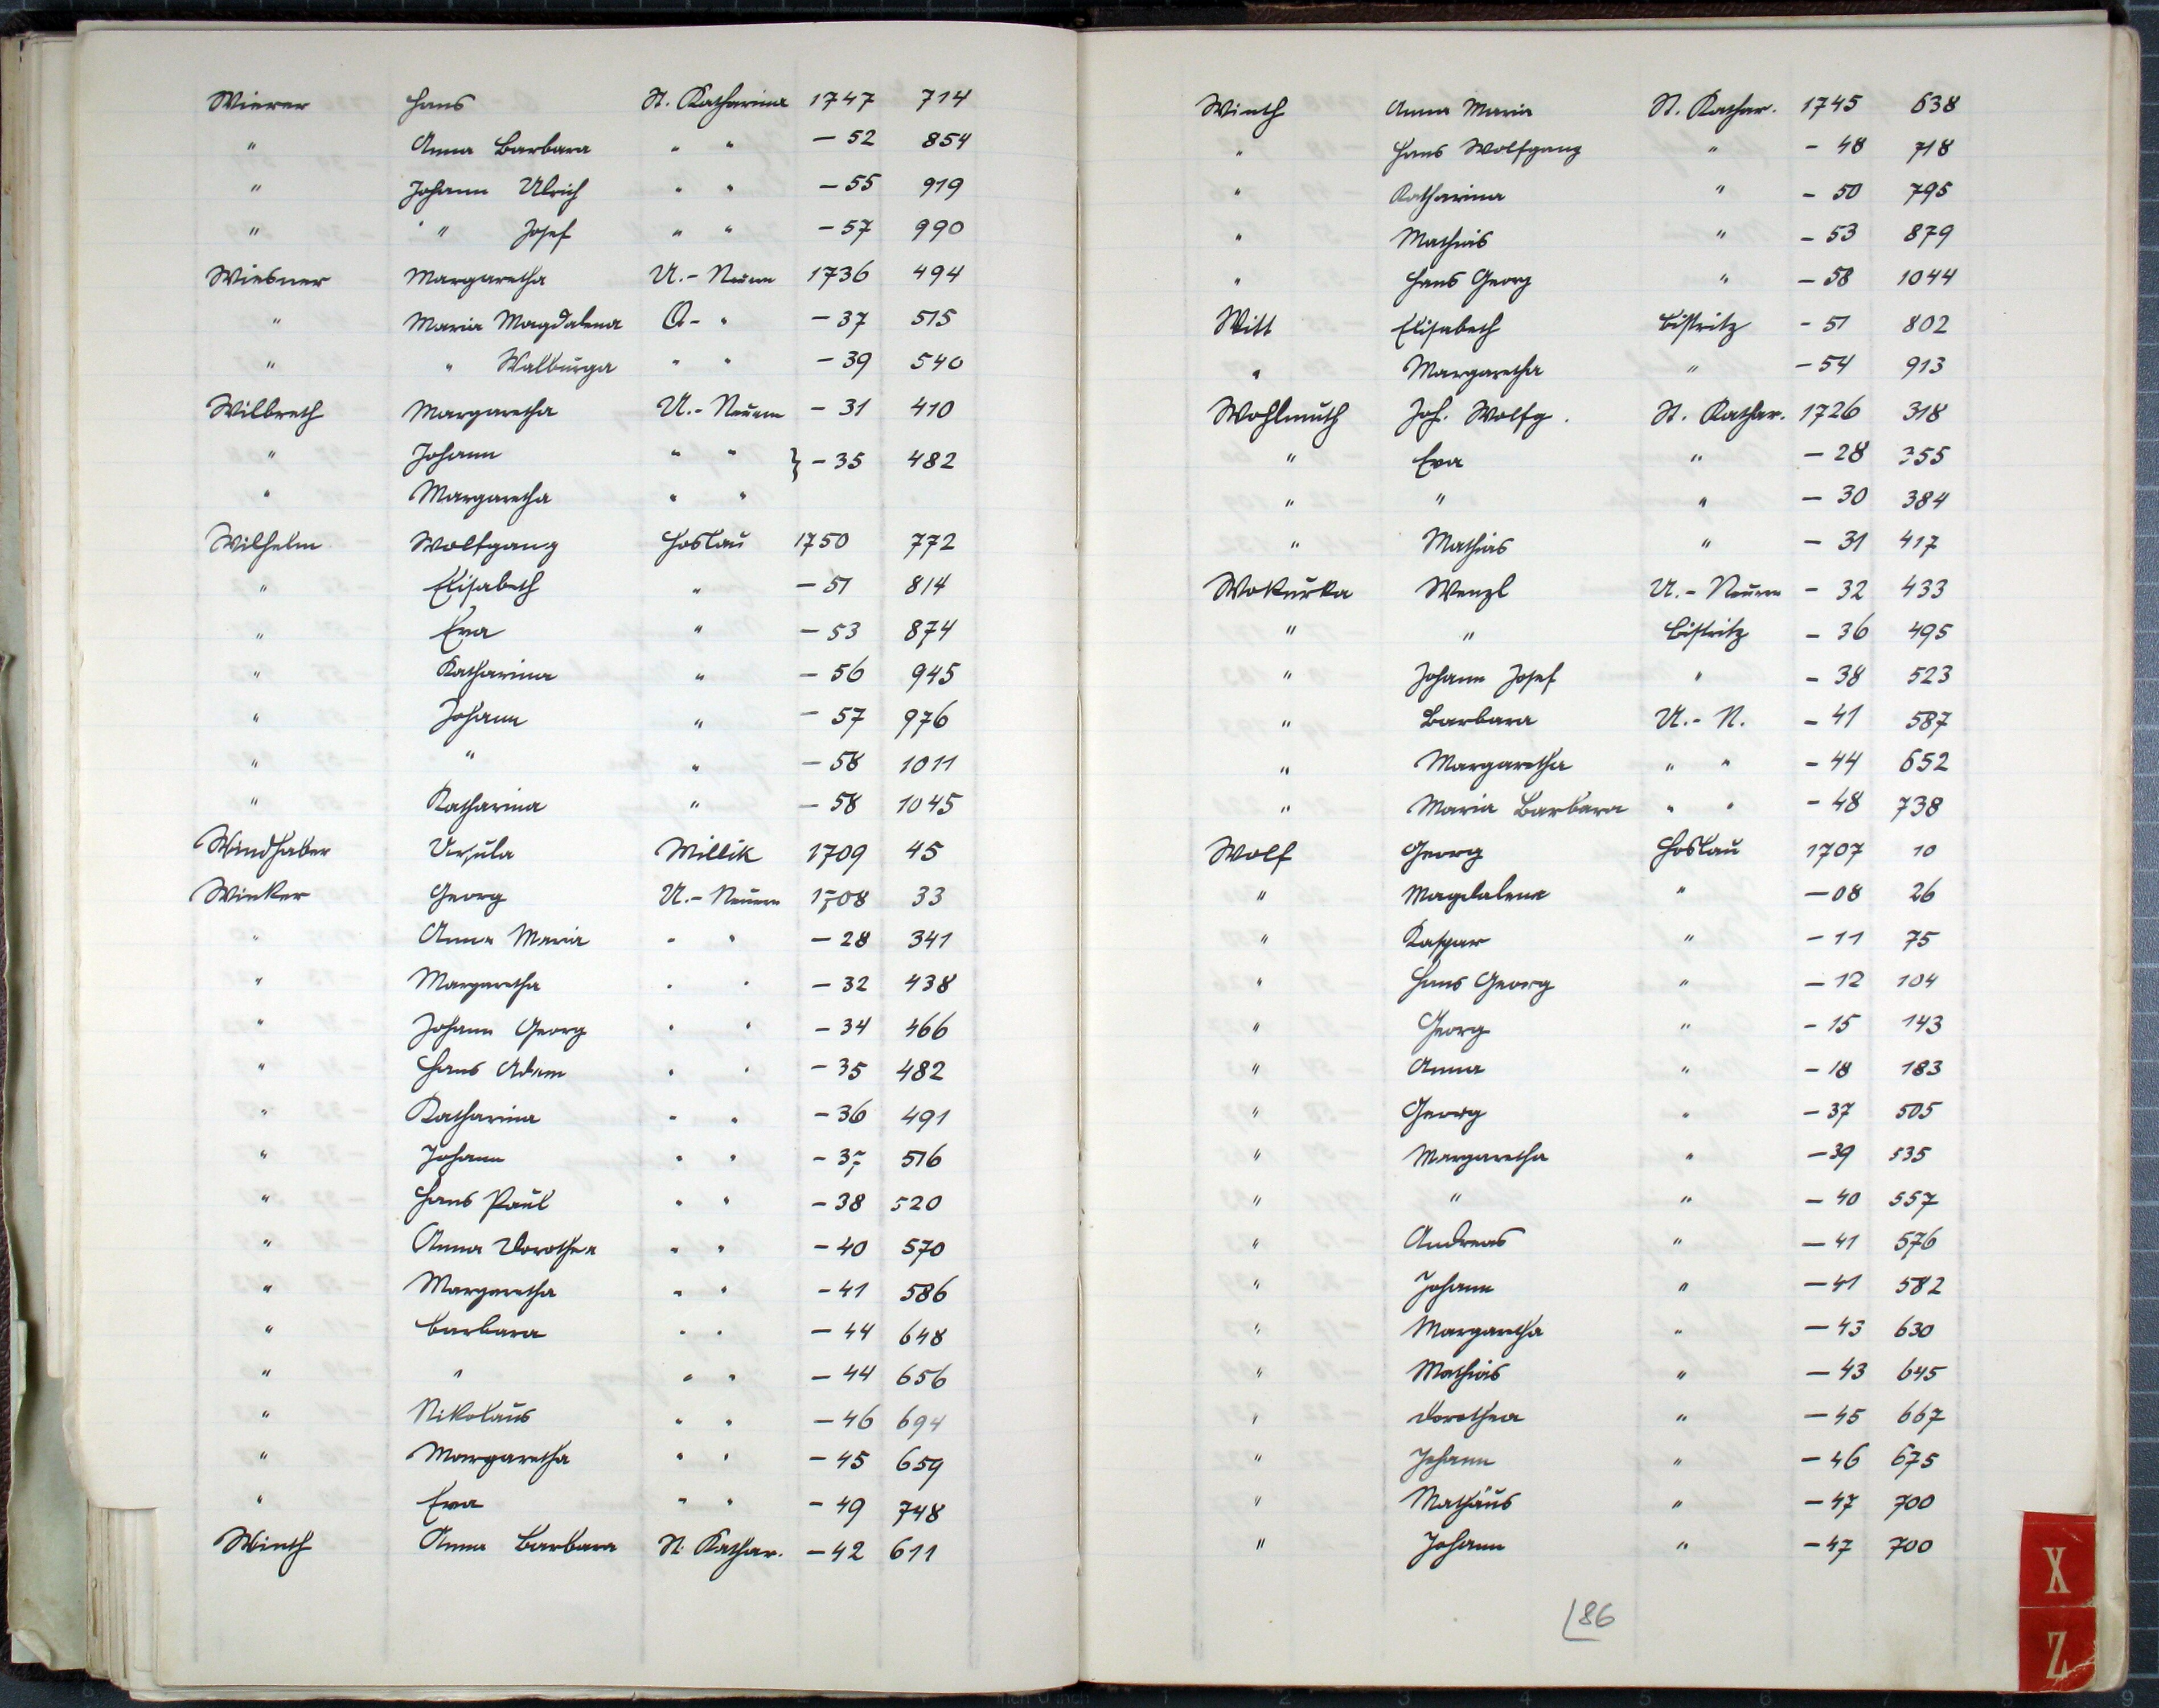 Wierer Hans St. Katharina 1747 714
" Anna Barbara " " – 52 854
" Johann Ulrich " " – 55 919
" " Josef " " – 57 990
Wiesner Margaretha U.- Neuern 1736 494
" Maria Magdalena O- " – 37 515
" " Walburga " " – 39 540
Wilbreth Margaretha U.- Neuern – 31 410
" Johann " " } – 35 482
" Margaretha " "
Wilhelm Wolfgang Hoslau 1750 772
" Elisabeth " – 51 814
" Eva " – 53 874
" Katharina " – 56 945
" Johann " – 57 976
" " " – 58 1011
" Katharina " – 58 1045
Windhaber Ursula Millik 1709 45
Winker Georg U.- Neuern 1708 33
" Anna Maria " " – 28 341
" Margaretha " " – 32 438
" Johann Georg " " – 34 466
" Hans Adam " " – 35 482
" Katharina " " – 36 491
" Johann " " – 37 516
" Hans Paul " " – 38 520
" Anna Dorothea " " – 40 570
" Margaretha " " – 41 586
" Barbara " " – 44 648
" " " " – 44 656
" Nikolaus " " – 46 694
" Margaretha " " – 45 659
" Eva " " – 49 748
Winth Anna Barbara St. Kathar. – 42 611
Winth Anna Maria St. Kathar. 1745 638
" Hans Wolfgang " – 48 718
" Katharina " – 50 795
" Mathias " – 53 879
" Hans Georg " – 58 1044
Witt Elisabeth Bistritz – 51 802
" Margaretha " – 54 913
Wohlmuth Joh. Wolfg. St. Kathar. 1726 318
" Eva " – 28 355
" " " – 30 384
" Mathias " – 31 417
Wokurka Wenzl U.- Neuern – 32 433
" " Bistritz – 36 495
" Johann Josef " – 38 523
" Barbara U.- N. – 41 587
" Margaretha " " – 44 652
" Maria Barbara " " – 48 738
Wolf Georg Hoslau 1707 10
" Magdalena " – 08 26
" Kaspar " – 11 75
" Hans Georg " – 12 104
" Georg " – 15 143
" Anna " – 18 183
" Georg " – 37 505
" Margaretha " – 39 535
" " " – 40 557
" Andreas " – 41 576
" Johann " – 41 582
" Margaretha " – 43 630
" Mathias " – 43 645
" Dorothea " – 45 667
" Johann " – 46 675
" Mathäus " – 47 700
" Johann " – 47 700
86
X
Z